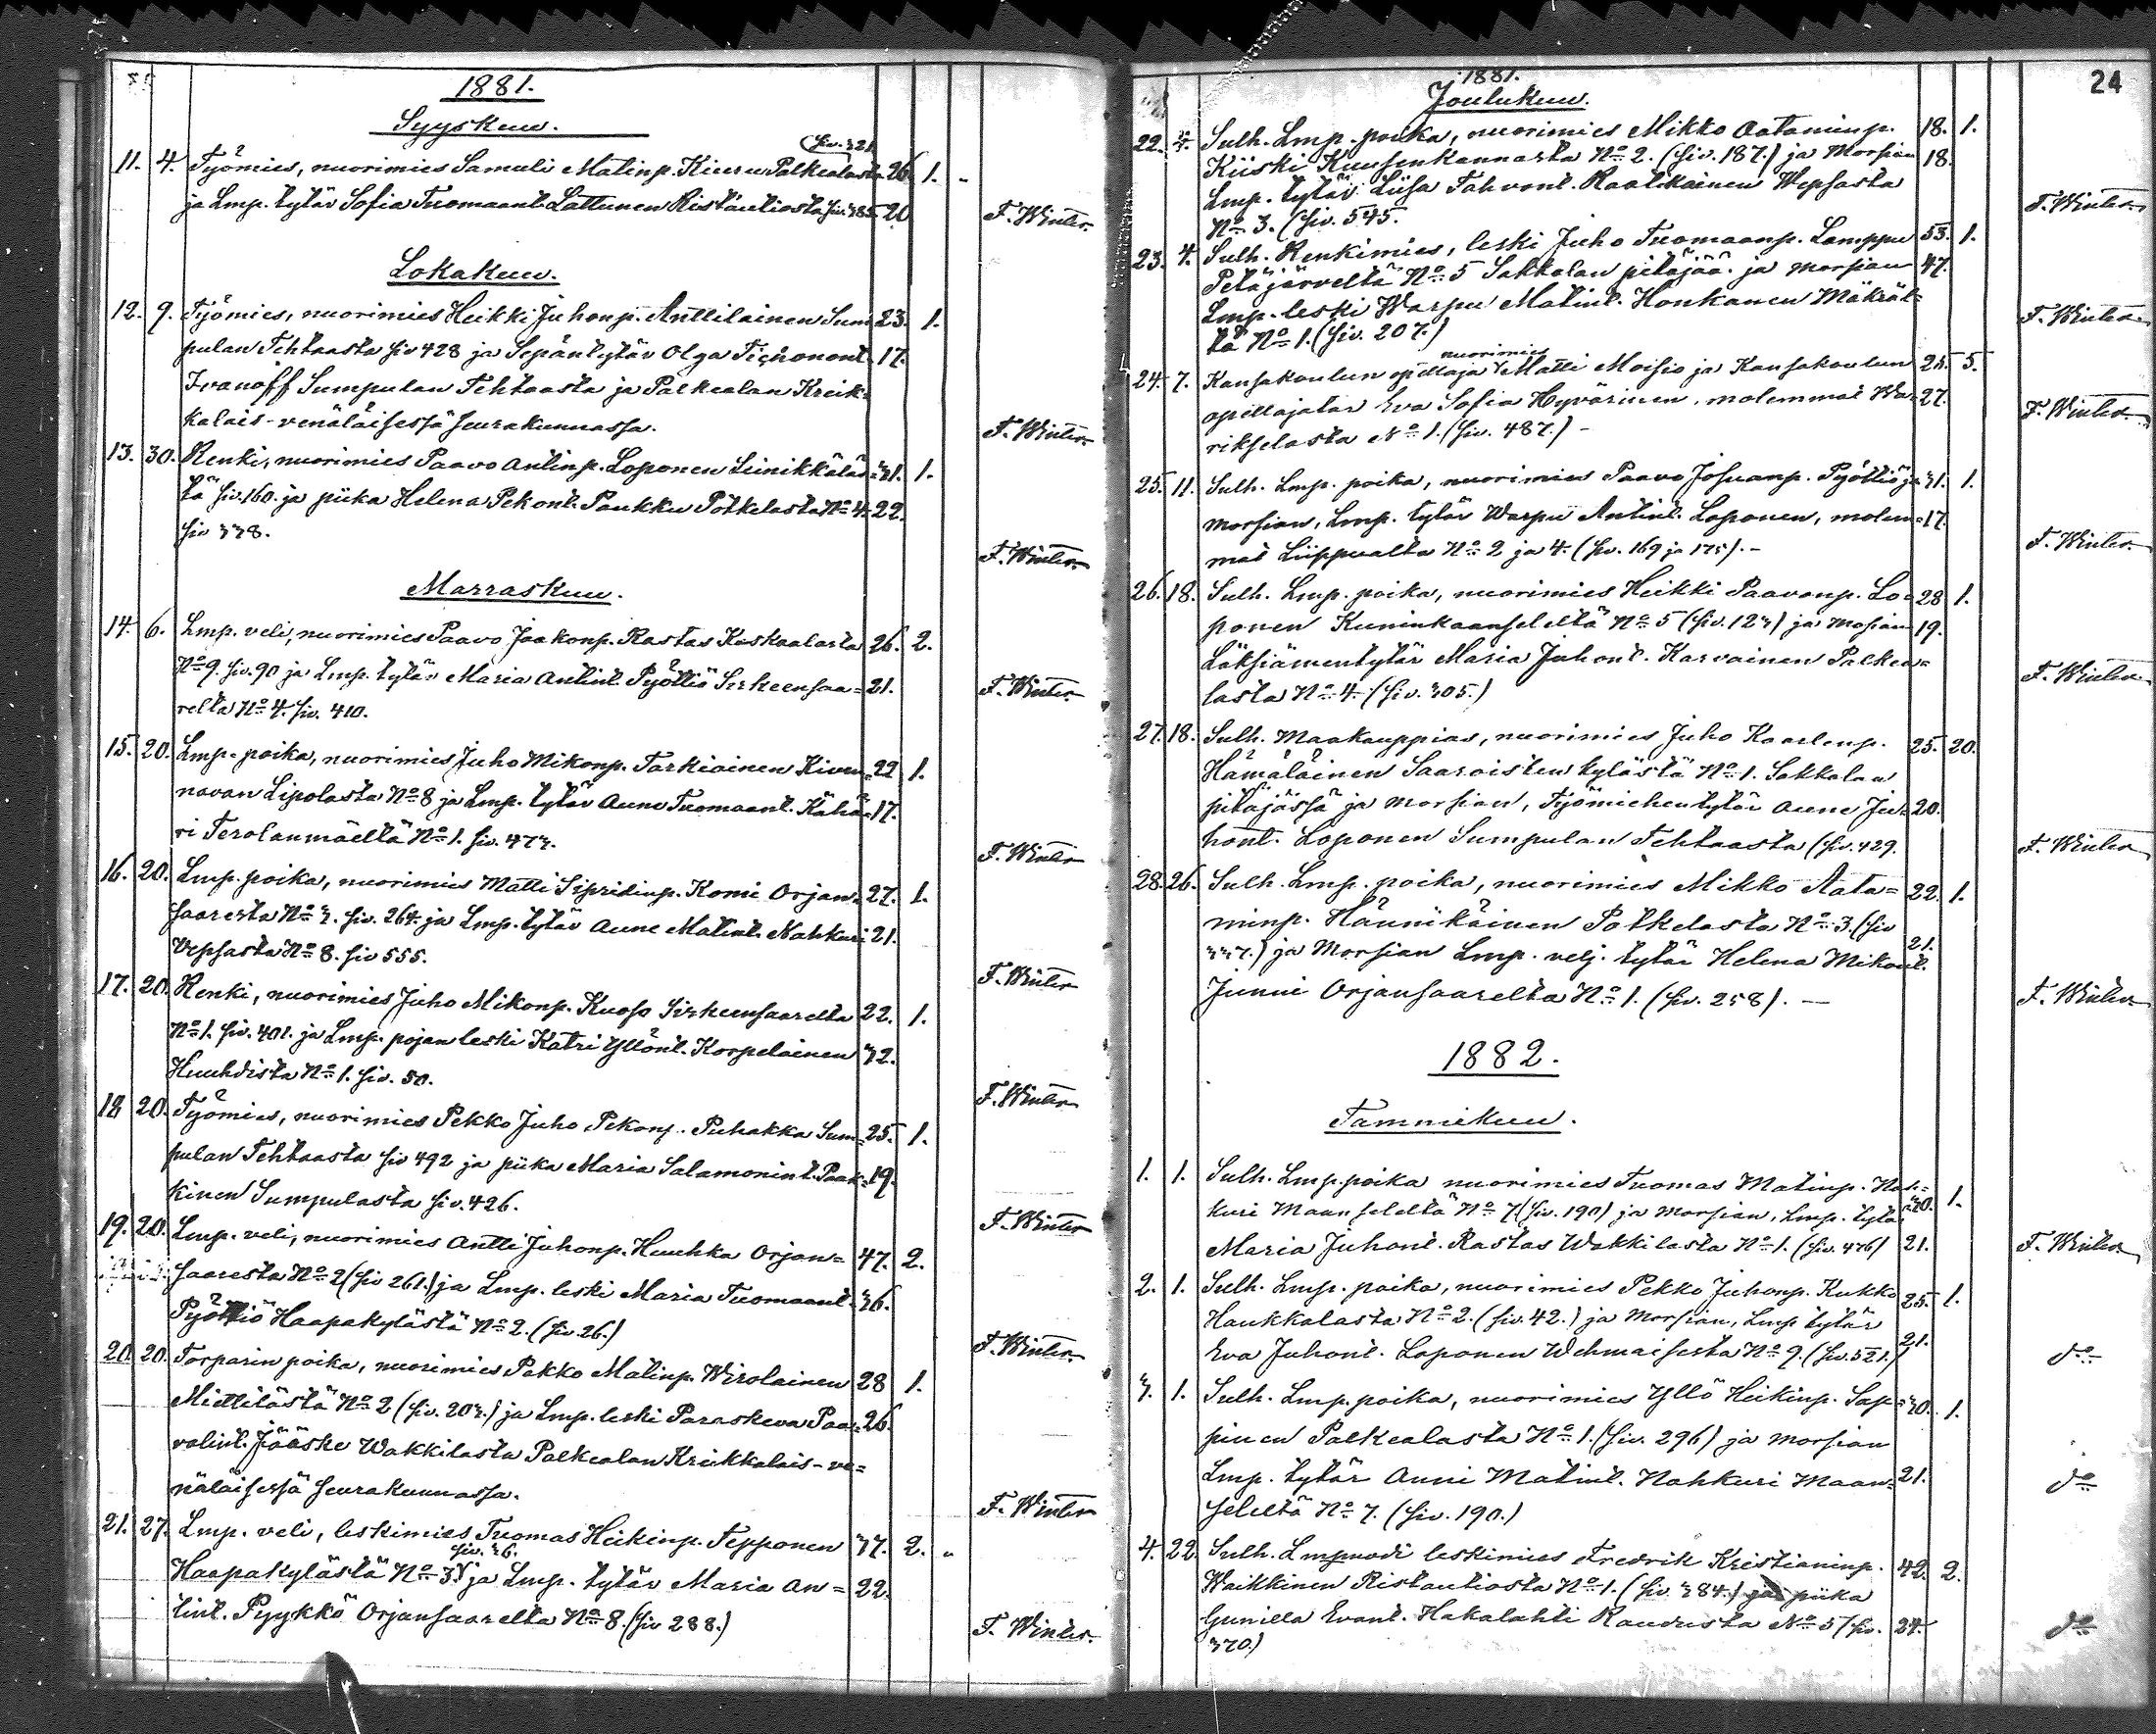 1881.
Syyskuu.
(siv. 321
11. 4. Työmies, nuorimies Samuli Matinp. Kiuru Palkealasta 26. 1.
ja Lmp. tytär Sofia Tuomaant. Lattunen Ristautiosta siv. 385. 20
F. Winter.
Lokakuu.
12. 9. Työmies, nuorimies Heikki Juhonp. Anttilainen Sum= 23. 1.
pulan Tehtaasta siv 428 ja Sepäntytär Olga Tichonont. 17.
Ivanoff Sumpulan Tehtaasta ja Palkealan Kreik=
kalais-venäläisessä seurakunnassa.
F. Winter.
13. 30. Renki, nuorimies Paavo Antinp. Loponen Leinikkäläs= 31. 1.
tä siv. 160. ja piika Helena Pekont. Paukku Pötkelasta No 4. 22.
siv 338.
F. Winter.
Marraskuu.
14. 6. Lmp. veli, nuorimies Paavo Jaakonp. Rastas Kaskaalasta 26. 2.
No 9. siv. 90 ja Lmp. tytär Maria Antint. Pyöttiö Sirkeensaa= 21.
relta No 4. siv. 410.
F. Winter.
15. 20. Lmp. poika, nuorimies Juho Mikonp. Tarkiainen Kiven= 22 1.
navan Lipolasta No 8 ja Lmp. tytär Aune Tuomaant. Kähä= 17.
ri Terolanmäeltä No 1. siv. 473.
F. Winter
16. 20. Lmp. poika, nuorimies Matti Sipridinp. Komi Orjan= 27. 1.
saaresta No 3. siv. 264. ja Lmp. tytär Aune Matint. Nahkuri 21.
Vepsasta No 8. siv 555.
F. Winter
17. 20. Renki, nuorimies Juho Mikonp. Kuosa Sirkeensaarelta 22. 1.
No 1. siv. 401. ja Lmp. pojan leski Katri Yllönt. Korpelainen 32.
Huuhdista No 1. siv. 50.
F. Winter
18 20. Työmies, nuorimies Pekko Juho Pekonp. Puhakka Sum= 25. 1.
pulan Tehtaasta siv 492 ja piika Maria Salamonint. Paak= 19.
kinen Sumpulasta siv. 426.
F. Winter
19. 20. Lmp. veli, nuorimies Antti Juhonp. Huuhka Orjan= 47. 2.
saaresta No 2 (siv 261.) ja Lmp. leski Maria Tuomaant. 36.
Pyöttiö Haapakylästä No 2. (siv. 26.)
F. Winter.
20. 20. Torparin poika, nuorimies Pekko Matinp. Wirolainen 28 1.
Miettilästä No 2 (siv. 203.) ja Lmp. leski Paraskeva Paa= 26.
volint. Jääske Wakkilasta Palkealan Kreikkalais-ve=
näläisessä seurakunnassa.
F. Winter
21. 27. Lmp. veli, leskimies Tuomas Heikinp. Tepponen 37. 2.
siv. 36.
Haapakylästä No 3. ja Lmp. tytär Maria An= 22.
tint. Pyykkö Orjansaarelta No 8. (siv 288.)
F. Winter.
24
1881.
Joulukuu.
22. 4. Sulh. Lmp. poika, nuorimies Mikko Aataminp. 18. 1.
Kiiski Kuusenkannasta No 2. (siv. 187.) ja Morsian 18.
Lmp. tytär Liisa Tahvont. Raatikainen Wepsasta
No 3. (siv. 545.
F. Winter.
23. 4. Sulh. Renkimies, leski Juho Tuomaanp. Lamppu 53. 1.
Petäjärveltä No 5 Sakkolan pitäjää ja morsian 47.
Lmp. leski Warpu Matint. Honkanen Mäkräl=
tä No 1. (siv. 207.)
F. Winter.
nuorimies
24. 7. Kansakoulun opettaja Matti Moisio ja Kansakoulun 25. 5.
opettajatar Eva Sofia Hyvärinen, molemmat Wa= 27.
rikselasta No 1. (siv. 487.) -
F. Winter.
25. 11. Sulh. Lmp. poika, nuorimies Paavo Josuanp. Pyöttiö ja 31. 1.
morsian, Lmp. tytär Warpu Antint. Loponen, molem= 17.
mat Liippualta No 2 ja 4. (siv. 169 ja 175). -
F. Winter.
26. 18. Sulh. Lmp. poika, nuorimies Heikki Paavonp. Lo= 28 1.
ponen Kuninkaanseleltä No 5 (siv. 123) ja Mosian 19.
Läksiämentytär Maria Juhont. Karvainen Palkea=
lasta No 4. (siv. 305.)
F. Winter.
27. 18. Sulh. Maakauppias, nuorimies Juho Kaarlenp. 25. 20.
Hämäläinen Saaroisten kylästä No 1. Sakkolan
pitäjässä ja morsian, Työmiehentytär Aune Ju= 20.
hont. Loponen Sumpulan Tehtaasta (siv. 429.
F. Winter
28. 26. Sulh. Lmp. poika, nuorimies Mikko Aata= 22. 1.
minp. Hännikäinen Potkelasta No 3. (siv
337.) ja Morsian Lmp. velj. tytär Helena Mikont. 21.
Junni Orjansaarelta No 1. (siv. 258). -
F. Winter
1882.
Tammikuu.
1. 1. Sulh. Lmp. poika nuorimies Tuomas Matinp. Nah=
kuri Maanseleltä No 7 (siv. 190) ja morsian, Lmp. tytär 20. 1.
Maria Juhont. Rastas Wakkilasta No 1. (siv. 476) 21.
F. Winter
2. 1. Sulh. Lmp. poika, nuorimies Pekko Juhonp. Kukko 25. 1.
Haukkalasta No 2. (siv. 42.) ja Morsian, Lmp tytär
Eva Juhont. Loponen Wehmaisesta No 9. (siv. 521.) 21.
do
3. 1. Sulh. Lmp. poika, nuorimies Yllö Heikinp. Sap= 30. 1.
pinen Palkealasta No 1. (siv. 296) ja morsian
Lmp. tytär Anni Matint. Nahkuri Maan= 21.
seleltä No 7. (siv. 190.)
do
4. 22. Sulh. Lmpvodi leskimies Fredrik Kristianinp. 42. 2.
Waikkinen Ristautiosta No 1. (siv. 384.) ja piika
Gunilla Evant. Hakalahti Raudusta No 5 (siv. 24.
370.)
do